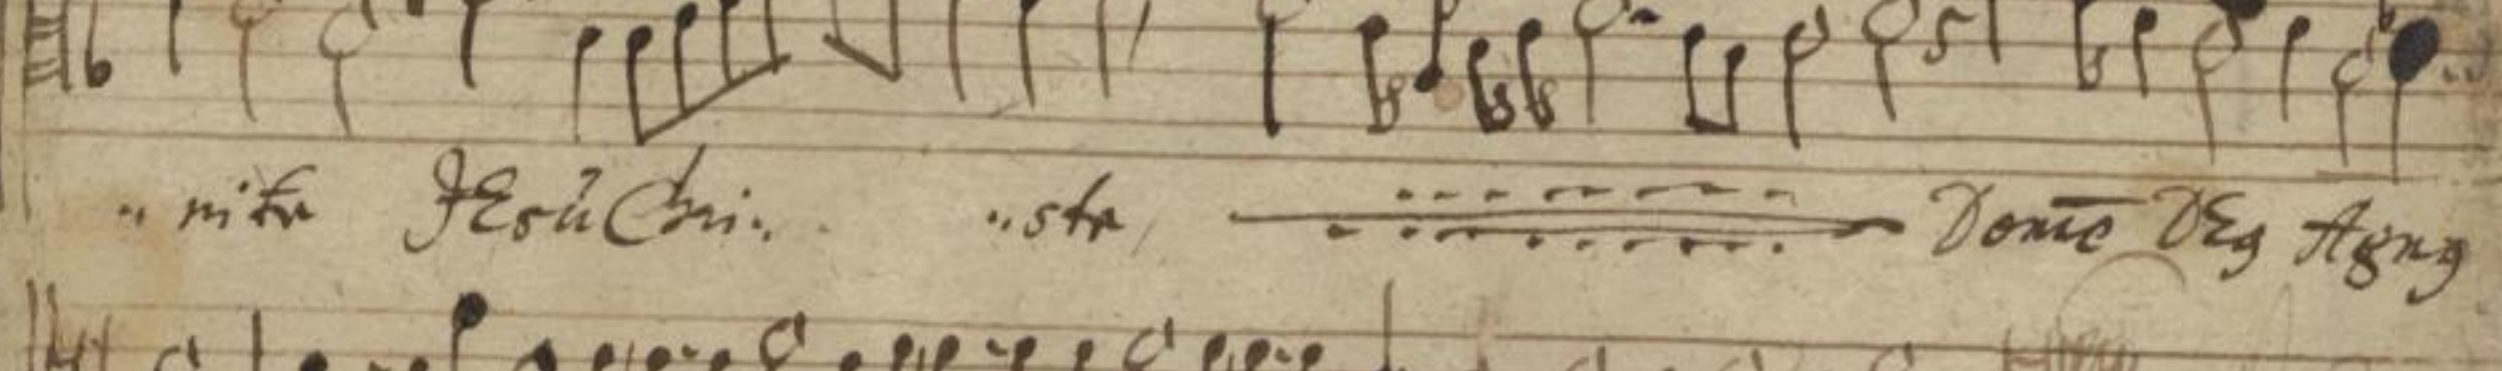 -- nite JEsu Chri- -ste, Dom̅e DEꝰ Agnꝰ